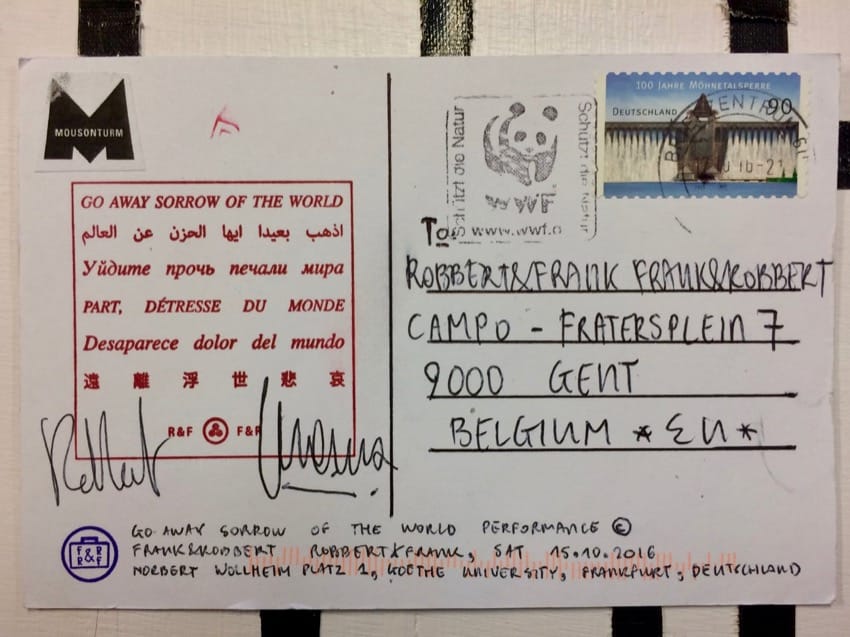 MOUSONTURM
GO AWAY SORROW OF THE WORLD
اذهب بعيدا ايها الحزن عن العالم
Уйдите прочь печали мира
PART, DÉTRESSE DU MONDE
Desaparece dolor del mundo
遠離浮世悲哀
R&F F&R
Schützt die Natur
WWF
www.wwf.d
Schützt die Natur
100 JAHRE MÖHNETALSPERRE
DEUTSCHLAND 90
ZENTRUM
To:
ROBBERT&FRANK FRANK&ROBBERT
CAMPO - FRATERSPLEIN 7
9000 GENT
BELGIUM * EU *
F&R
R&F
GO AWAY SORROW OF THE WORLD PERFORMANCE ©
FRANK&ROBBERT ROBBERT&FRANK, SAT 15.10.2016
NORBERT WOLLHEIM PLATZ 1, GOETHE UNIVERSITY, FRANKFURT, DEUTSCHLAND